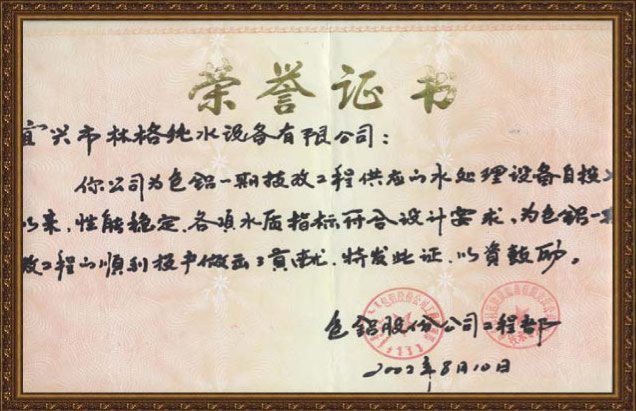 荣誉证书
宜兴市林格纯水设备有限公司：
你公司为包铝一期技改工程供应的水处理设备自投
以来，性能稳定，各项水质指标符合设计要求，为包铝一
改工程的顺利投产做出了贡献，特发此证，以资鼓励。
包铝股份公司工程部
2002年8月10日